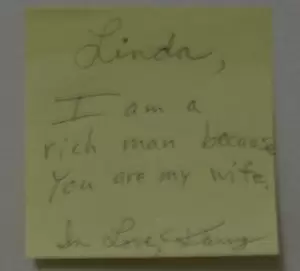 Linda,
I am a
rich man because
you are my wife.
In Love,